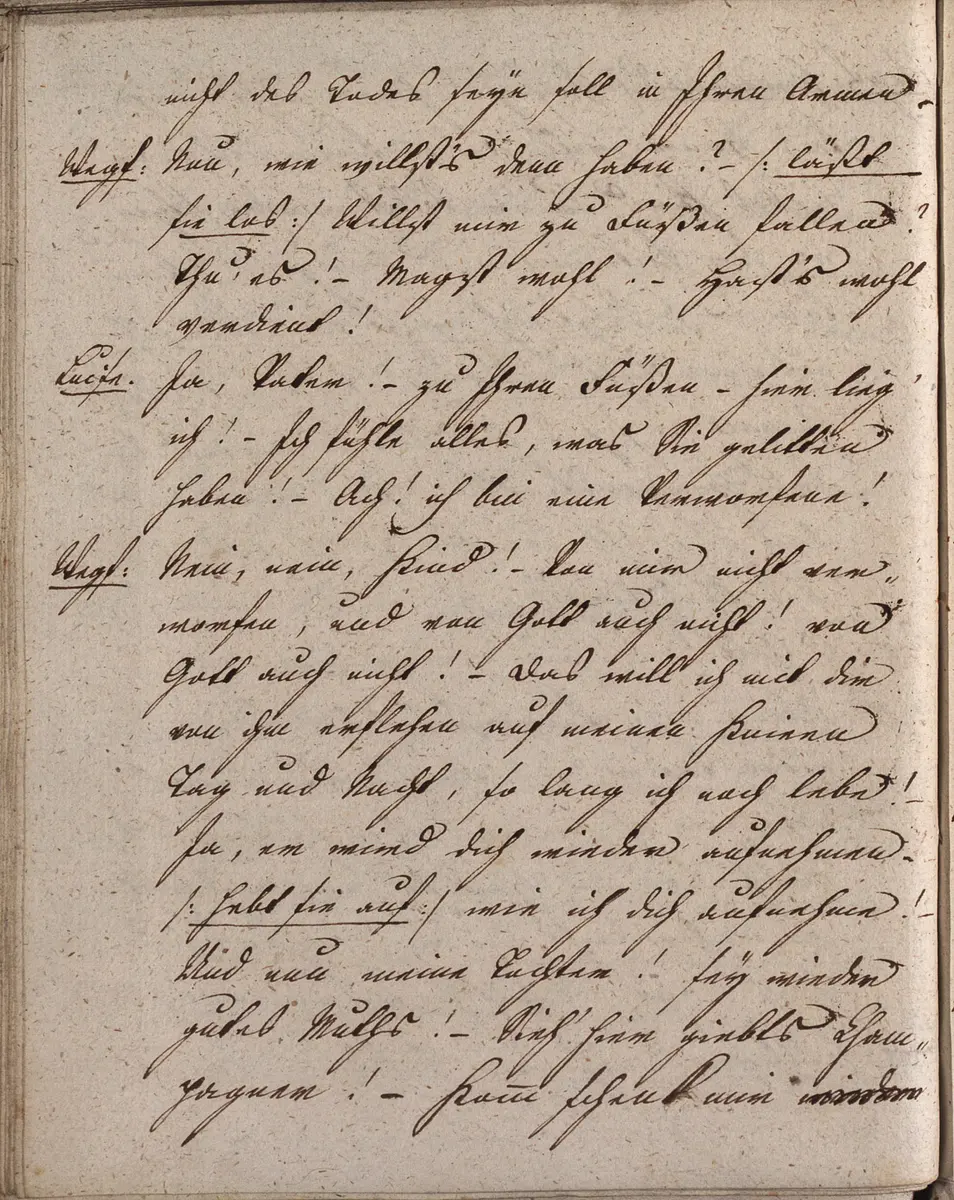 nicht des Todes seyn soll in Ihren Armen -
Wegf: Nun, wie willst's denn haben? - /: läßt
sie los :/ Willst mir zu Füßen fallen?
Thu' es! - Magst wohl! - Hast's wohl
verdient!
Ja, Vater! - zu Ihren Füßen - hier lieg'
ich! - Ich fühle alles, was Sie gelitten
haben! - Ach! ich bin eine Verworfene!
Wegf: Nein, nein, Kind! - Von mir nicht ver„
worfen, und von Gott auch nicht! von
Gott auch nicht! - Das will ich mit dir
von ihm erflehen auf meinen Knieen
Tag und Nacht, so lang ich noch lebe! -
Ja, er wird dich wieder aufnehmen -
/: hebt sie auf :/ wie ich dich aufnehme! -
Und nun meine Tochter! sey wieder
gutes Muths! - Sieh' hier giebts Cham„
pagner! - Kom̅ schenk mir